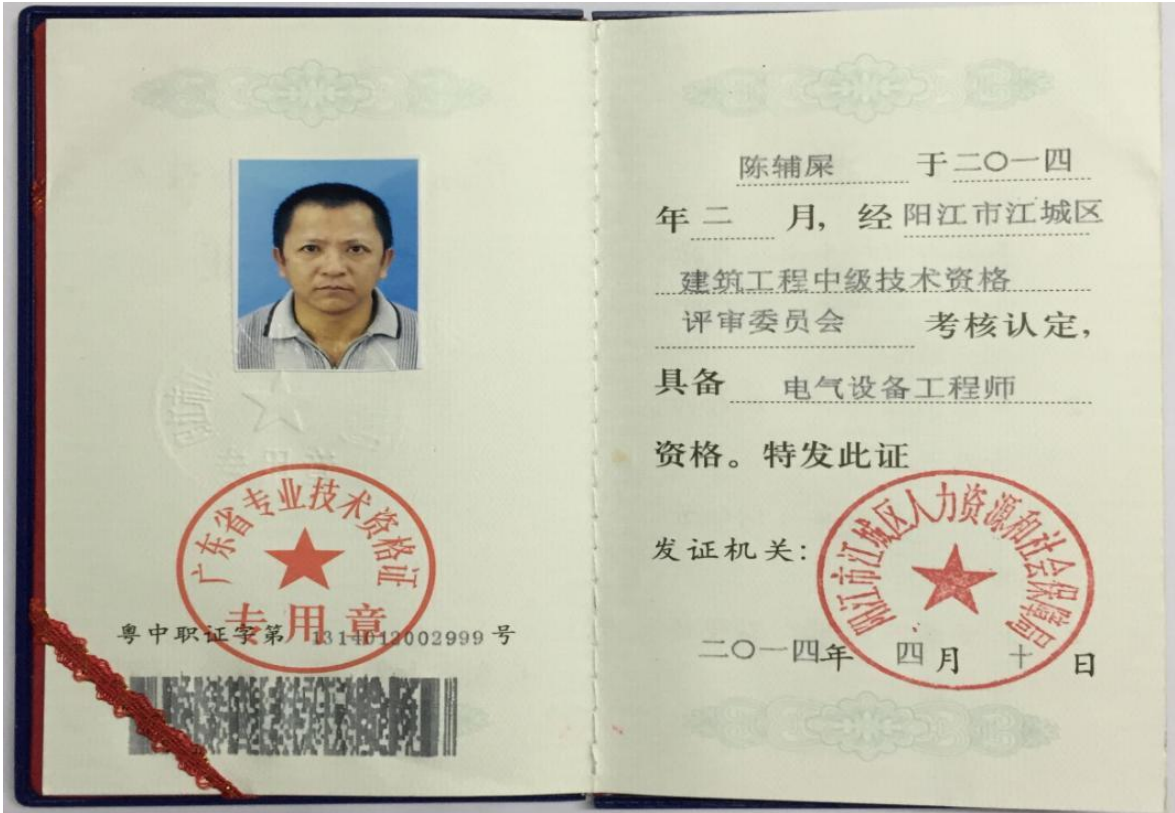 广东省专业技术资格证
专用章
粤中职证字第 1314012002999 号
陈辅屎 于二〇一四
年 二 月, 经 阳江市江城区
建筑工程中级技术资格
评审委员会 考核认定,
具备 电气设备工程师
资格。特发此证
发证机关:
阳江市江城区人力资源和社会保障局
二〇一四年 四月 十 日